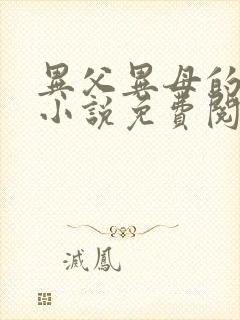 異父異母的
小說免費閱
滅鳳